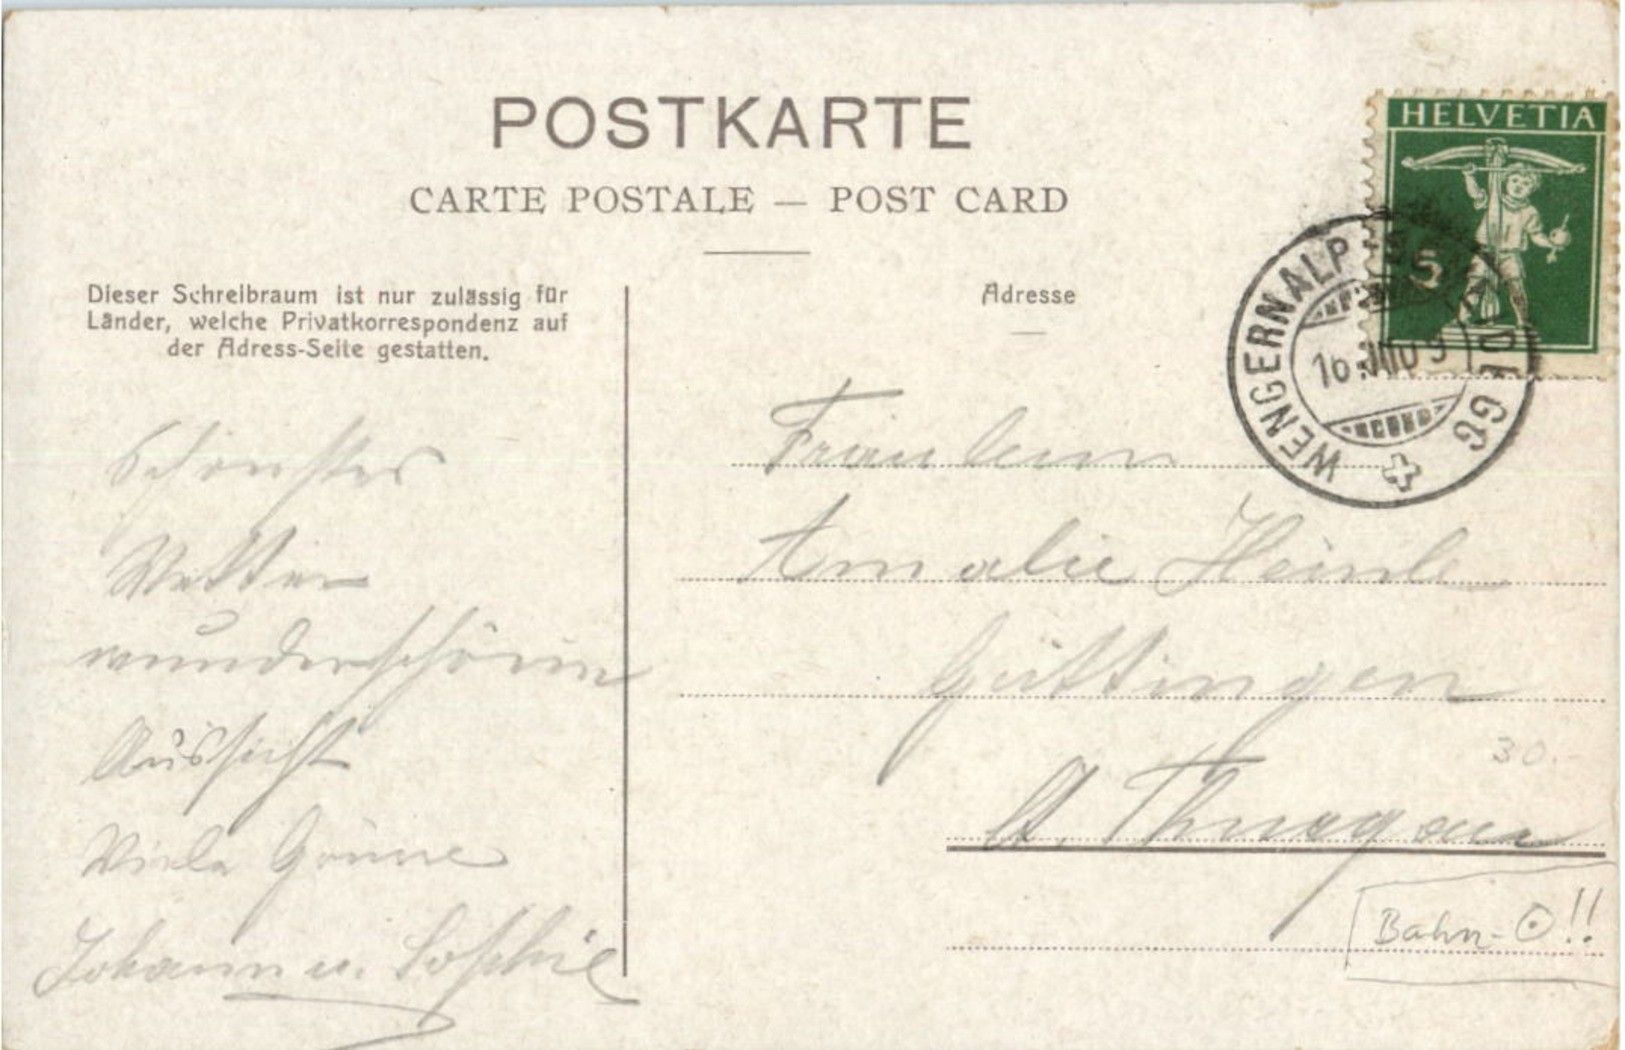 POSTKARTE
CARTE POSTALE — POST CARD
HELVETIA
5
WENGERNALP
16. 09
GG
Dieser Schreibraum ist nur zulässig für
Länder, welche Privatkorrespondenz auf
der Adress-Seite gestatten.
Adresse
Schönstes
Wetter
wunderschöne
Aussicht
Viele Grüsse
Johann u. Sophie
Fräulein
Amalie Heinle
Güttingen
Ct. Thurgau
30.-
Bahn-⊙!!